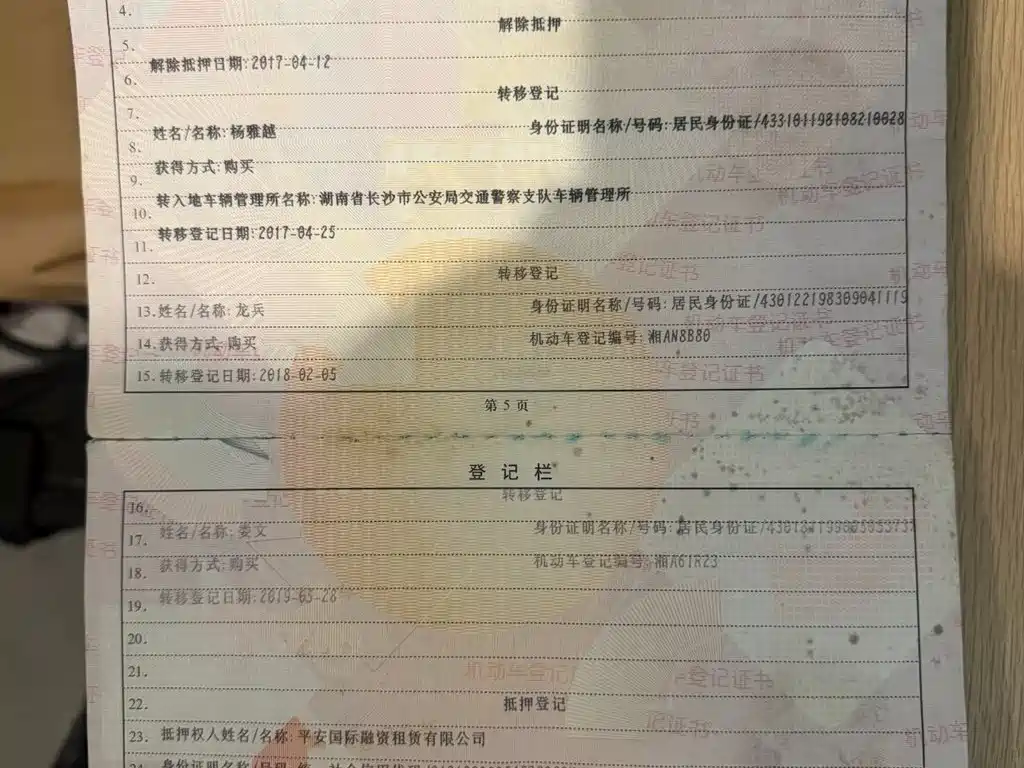 4.
解除抵押
5.
解除抵押日期:2017-04-12
6.
转移登记
7.
姓名/名称:杨雅越 身份证明名称/号码:居民身份证/433101198108210028
8.
获得方式:购买
9.
转入地车辆管理所名称:湖南省长沙市公安局交通警察支队车辆管理所
10.
转移登记日期:2017-04-25
11.
12. 转移登记
13. 姓名/名称:龙兵 身份证明名称/号码:居民身份证/430122198309041119
14. 获得方式:购买 机动车登记编号:湘AN8B80
15. 转移登记日期:2018-02-05
第 5 页
登 记 栏
16. 转移登记
17. 姓名/名称:娄文 身份证明名称/号码:居民身份证/
18. 获得方式:购买 机动车登记编号:湘A61R23
19. 转移登记日期:2019-03-28
20.
21.
22. 抵押登记
23. 抵押权人姓名/名称:平安国际融资租赁有限公司
24.